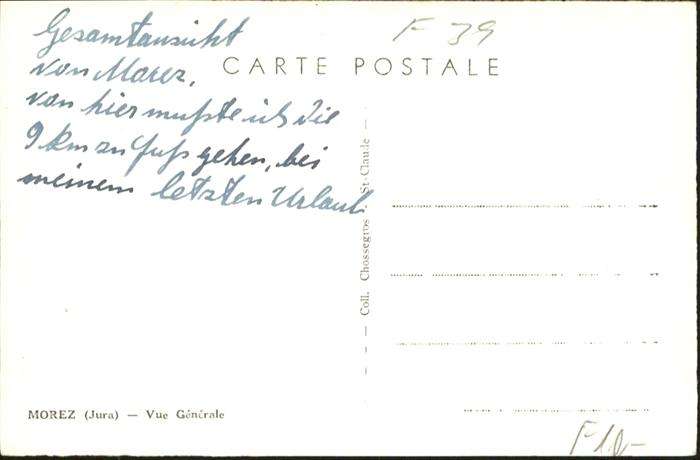 Gesamtansicht
von Morez,
von hier mußte ich die
9 km zu Fuß gehen, bei
meinem letzten Urlaub
F 39
CARTE POSTALE
Coll. Chossegros - St-Claude
MOREZ (Jura) — Vue Générale
F 10,-